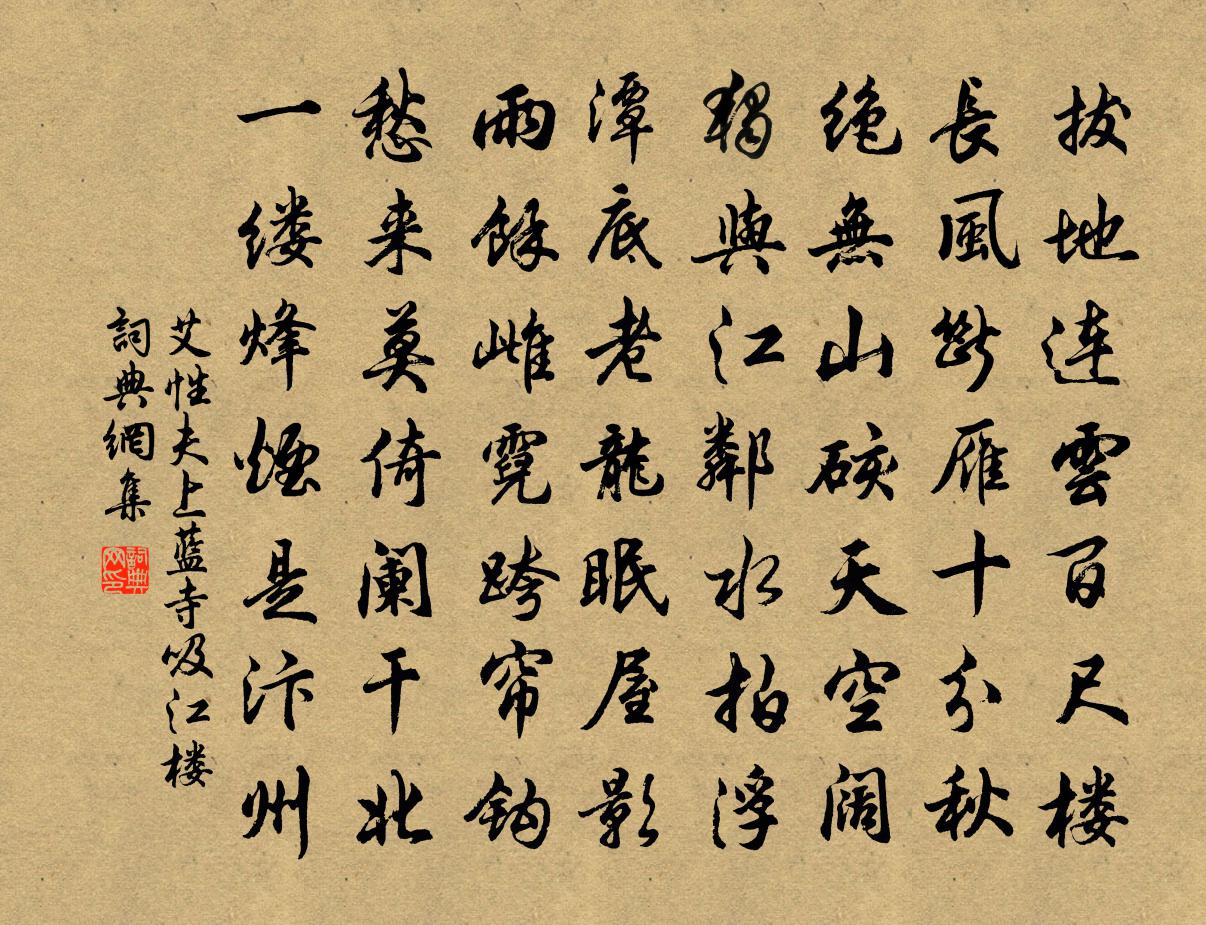 拔地连雲百尺楼
長風斷雁十分秋
絶無山礙天空阔
獨與江鄰水拍浮
潭底老龍眠屋影
雨餘雌霓跨帘钩
愁来莫倚阑干北
一缕烽煙是汴州
艾性夫上藍寺吸江楼
詞典網集
詞典
网印